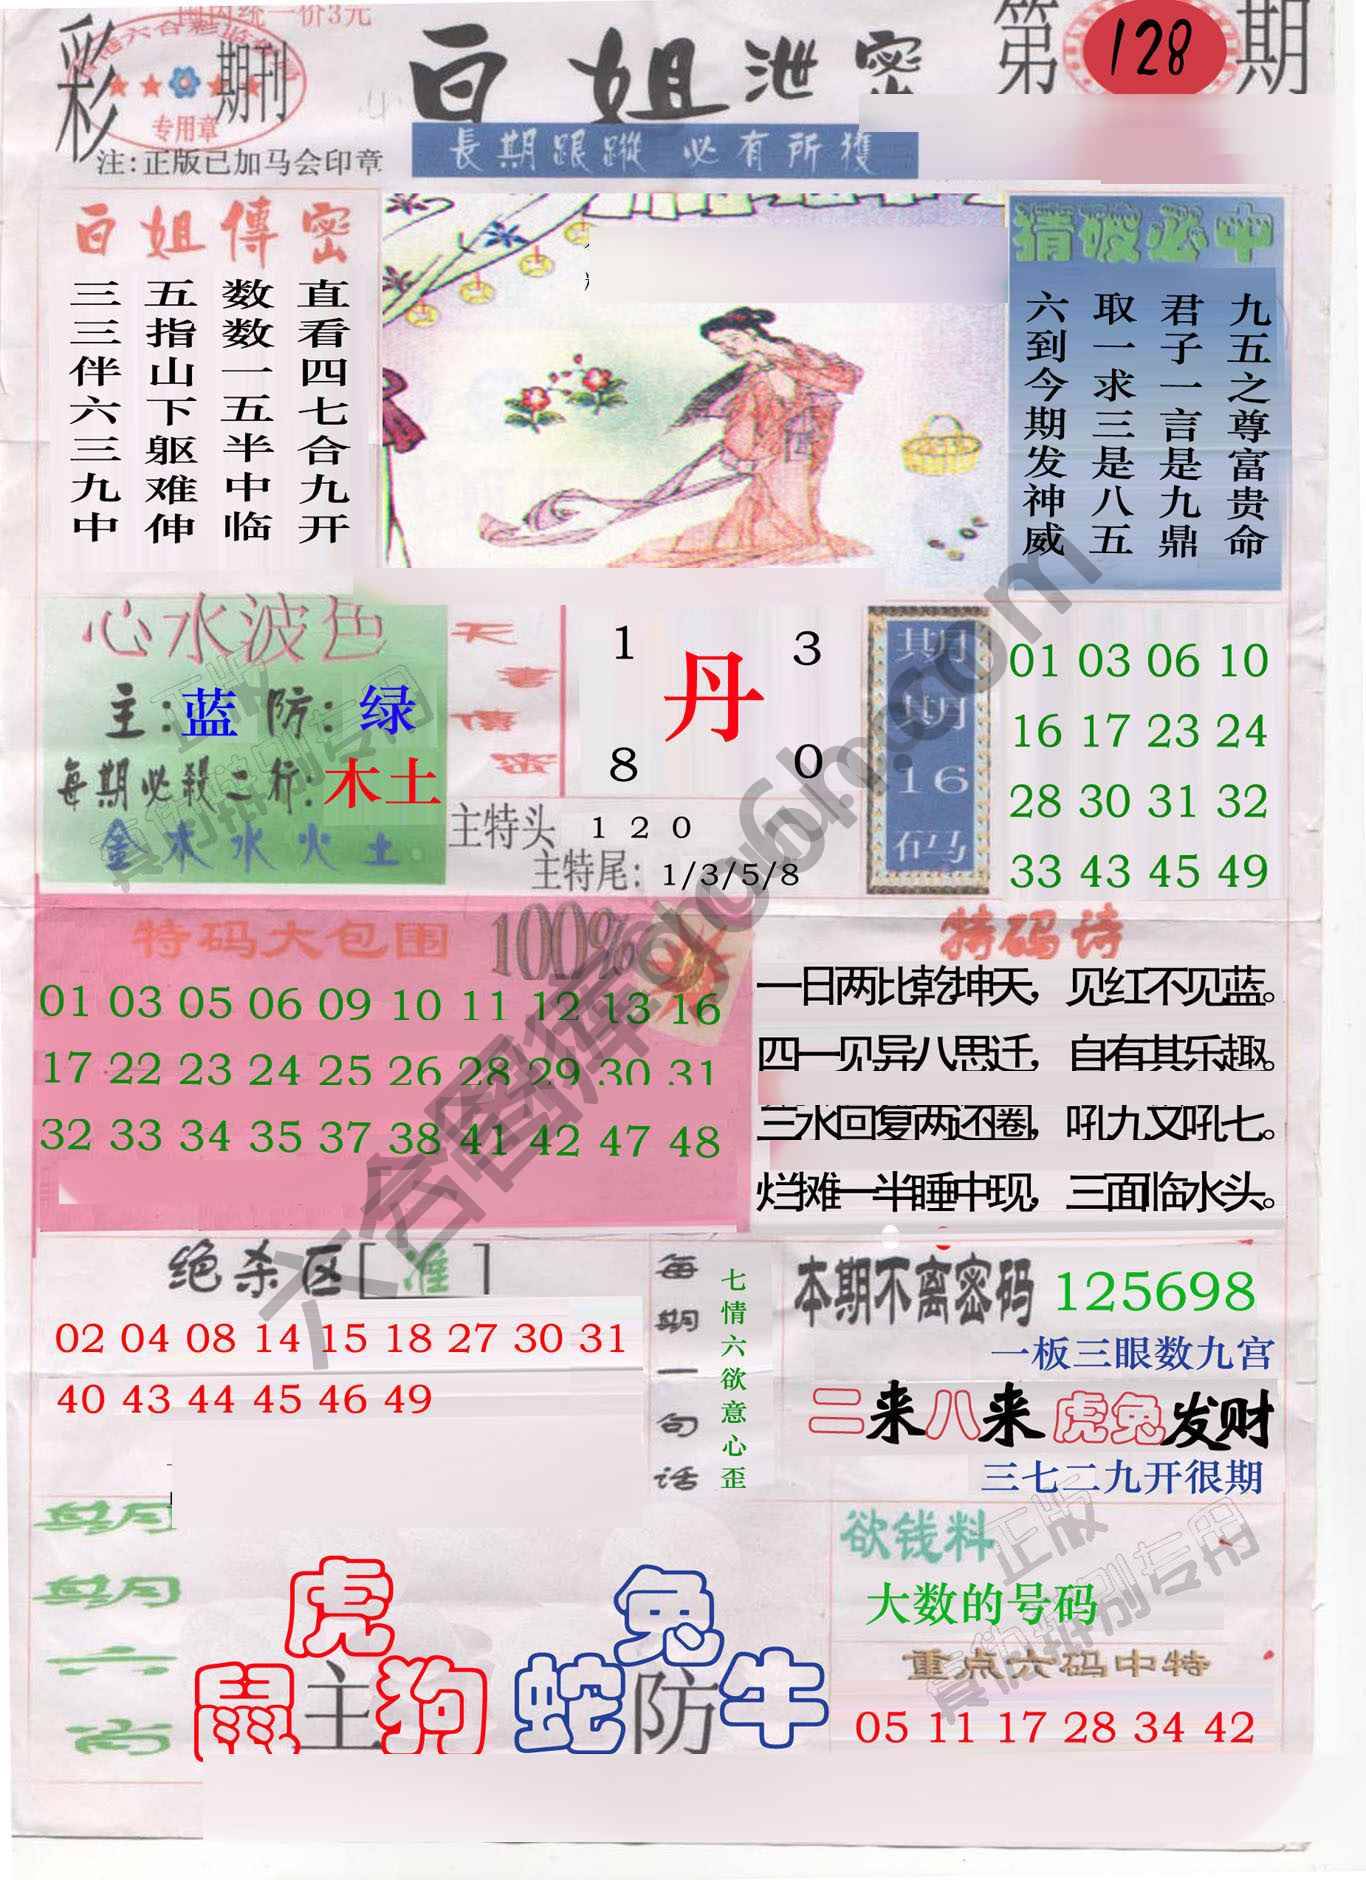 国内统一价3元
彩
期刊
专用章
注:正版已加马会印章
白姐泄密
長期跟蹤 必有所獲
第128期
白姐傳密
直看四七合九开
数数一五半中临
五指山下躯难伸
三三伴六三九中
猜破必中
九五之尊富贵命
君子一言是九鼎
取一求三是八五
六到今期发神威
心水波色
主:蓝 防:绿
每期必殺二行:木土
金木水火土
1 3
丹
8 0
主特头 1 2 0
主特尾: 1/3/5/8
期期16码
01 03 06 10
16 17 23 24
28 30 31 32
33 43 45 49
特码大包围 100%
01 03 05 06 09 10 11 12 13 16
17 22 23 24 25 26 28 29 30 31
32 33 34 35 37 38 41 42 47 48
特码诗
一日两比乾坤天, 见红不见蓝。
四一见异八思迁, 自有其乐趣。
三水回复两还圈, 吼九又吼七。
烂摊一半睡中现, 三面临水头。
绝杀区[准]
02 04 08 14 15 18 27 30 31
40 43 44 45 46 49
每期一句话
七情六欲意心歪
本期不离密码 125698
一板三眼数九宫
二来八来 虎兔发财
三七二九开很期
期期六肖
虎
鼠主狗
兔
蛇防牛
欲钱料
大数的号码
重点六码中特
05 11 17 28 34 42
正版
正版